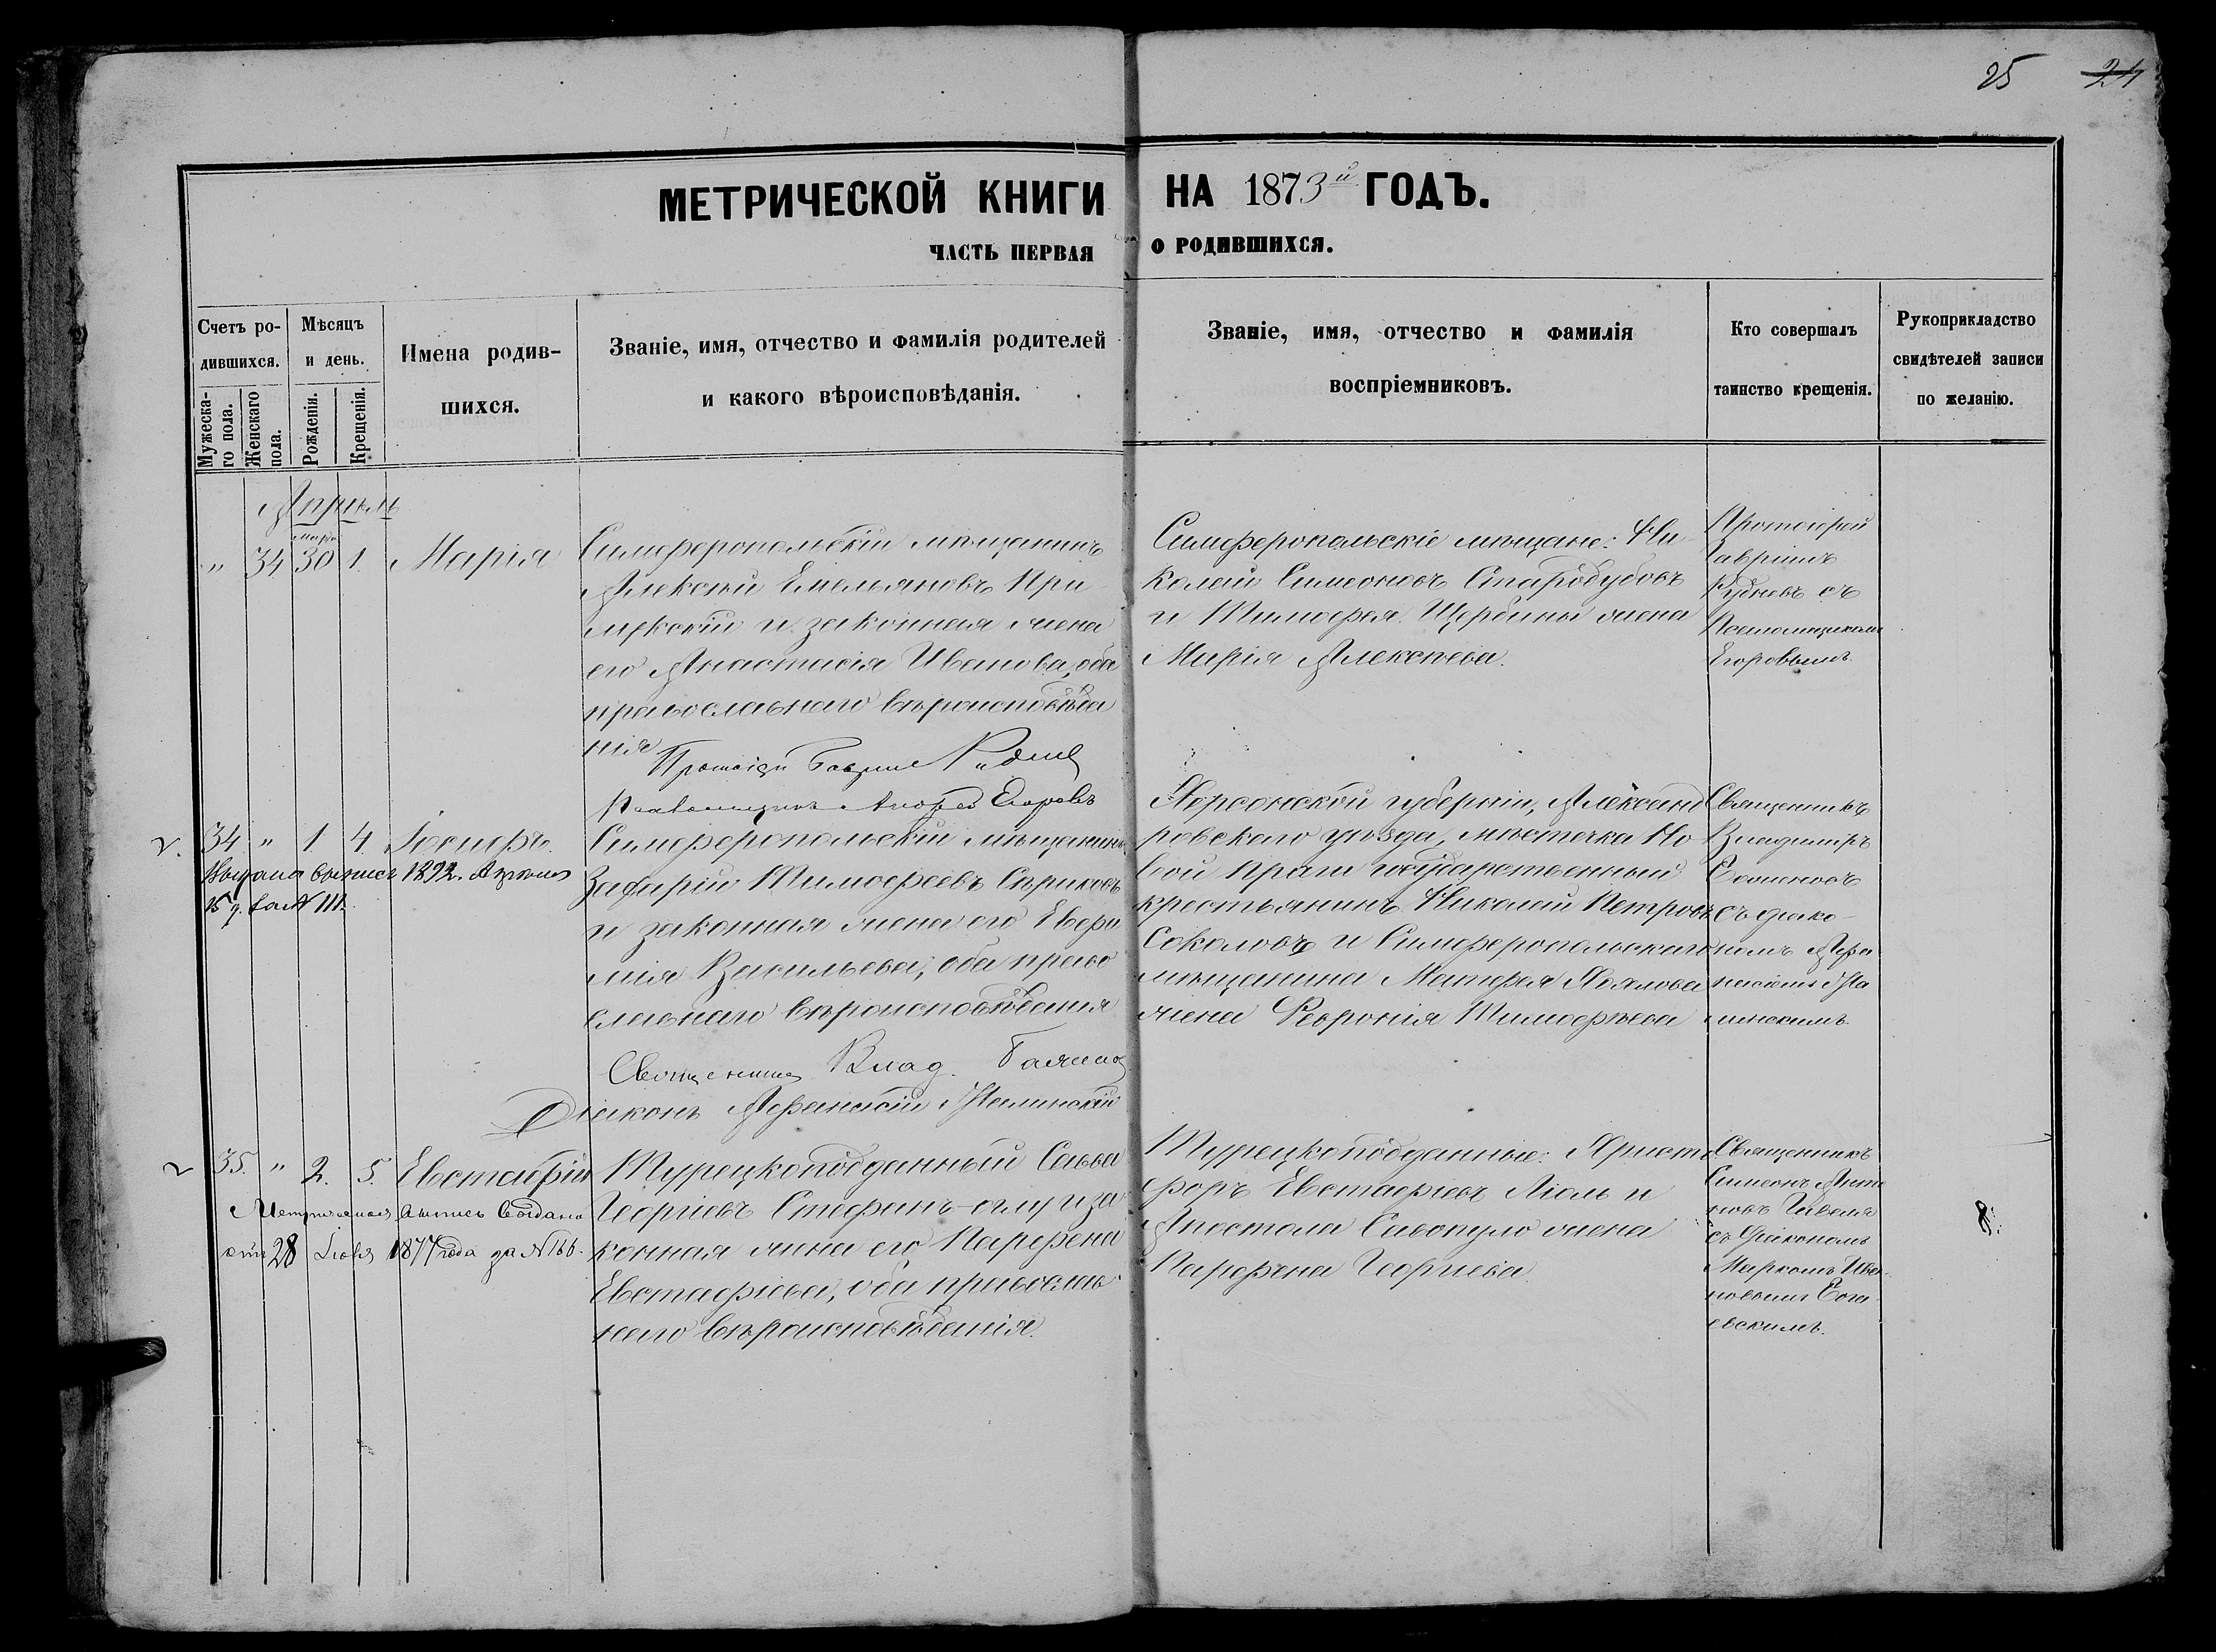 25 24
МЕТРИЧЕСКОЙ КНИГИ НА 1873й ГОДЪ.
ЧАСТЬ ПЕРВАЯ О РОДИВШИХСЯ.
Счетъ ро-
дившихся.
Мужеска-
го пола.
Женскаго
пола.
Мѣсяцъ
и день.
Рожденія.
Крещенія.
Имена родив-
шихся.
Званіе, имя, отчество и фамилія родителей
и какого вѣроисповѣданія.
Званіе, имя, отчество и фамилія
воспріемниковъ.
Кто совершалъ
таинство крещенія.
Рукоприкладство
свидѣтелей записи
по желанію.
Апрѣль
марта
„ 34 30 1. Марія
Симферопольскій мѣщанинъ
Алексѣй Емельяновъ При
и законная жена
его Анастасія Иванова, оба
православнаго вѣроисповѣда
нія
Симферопольскіе мѣщане: Ни
колай Симеоновъ Стародубовъ
и Тимофея Щербины жена
Марія Алексѣева.
Протоіерей
Гавріилъ
Рудневъ съ
Псаломщикомъ
Егоровымъ.
Андрей Егоровъ
34 „ 1 4. Іосифъ.
Выдана выпись 1892. Апрѣля
15 д. за № 111.
Симферопольскій мѣщанинъ
Тимофеевъ
и законная жена его Евфи
мія Васильева, оба право
славнаго вѣроисповѣданія
Священникъ Влад.
Діаконъ Афанасій
Херсонской губерніи, Александ
ровскаго уѣзда, мѣстечка Но
вой Праги государственный
крестьянинъ Николай Петровъ
Соколовъ и Симферопольскаго
мѣщанина Матфея
жена Февронія Тимофѣева
Священникъ
Владиміръ
съ діако-
номъ Афа
насіемъ
35. „ 2. 5. Евстафій
Метрическая выпись выдана
отъ 28 Іюля 1877 года за № 166.
Турецкоподданный Савва
Георгіевъ Стефанъ-оглу и за
конная жена его Парфена
Евстафіева, оба православ
наго вѣроисповѣданія.
Турецкоподданные: Христо
форъ Евстафіевъ и
Апостола Савопуло жена
Парфена Георгіева.
Священникъ
Симеонъ
съ діакономъ
Маркомъ Ива
новымъ
евскимъ.
8.